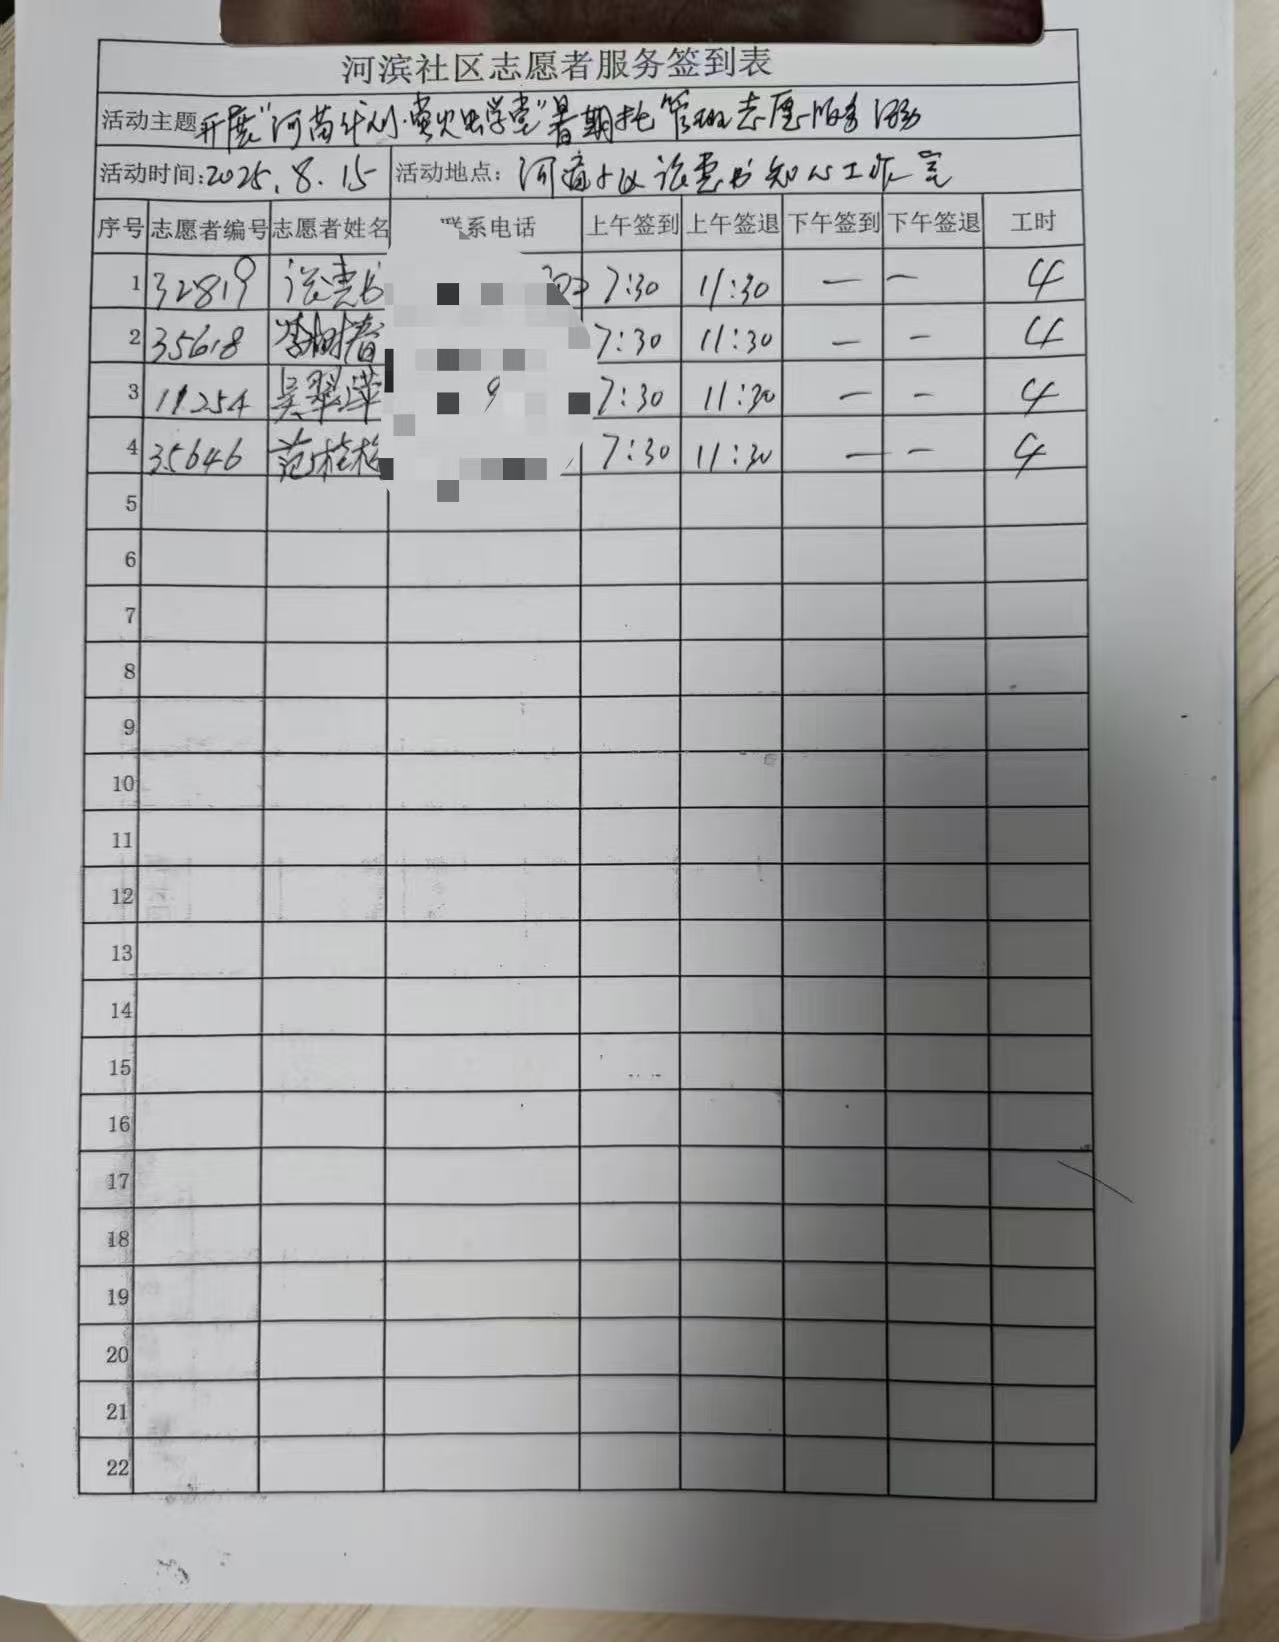 河滨社区志愿者服务签到表
活动主题 开展“河苗计划·萤火虫学堂”暑期托管班志愿服务活动
活动时间:2025.8.15 活动地点: 知心工作室
序号 志愿者编号 志愿者姓名 联系电话 上午签到 上午签退 下午签到 下午签退 工时
1 32819 7:30 11:30 — — 4
2 35618 李树春 7:30 11:30 — — 4
3 11254 吴翠萍 9 7:30 11:30 — — 4
4 35646 范桂 7:30 11:30 — — 4
5
6
7
8
9
10
11
12
13
14
15
16
17
18
19
20
21
22